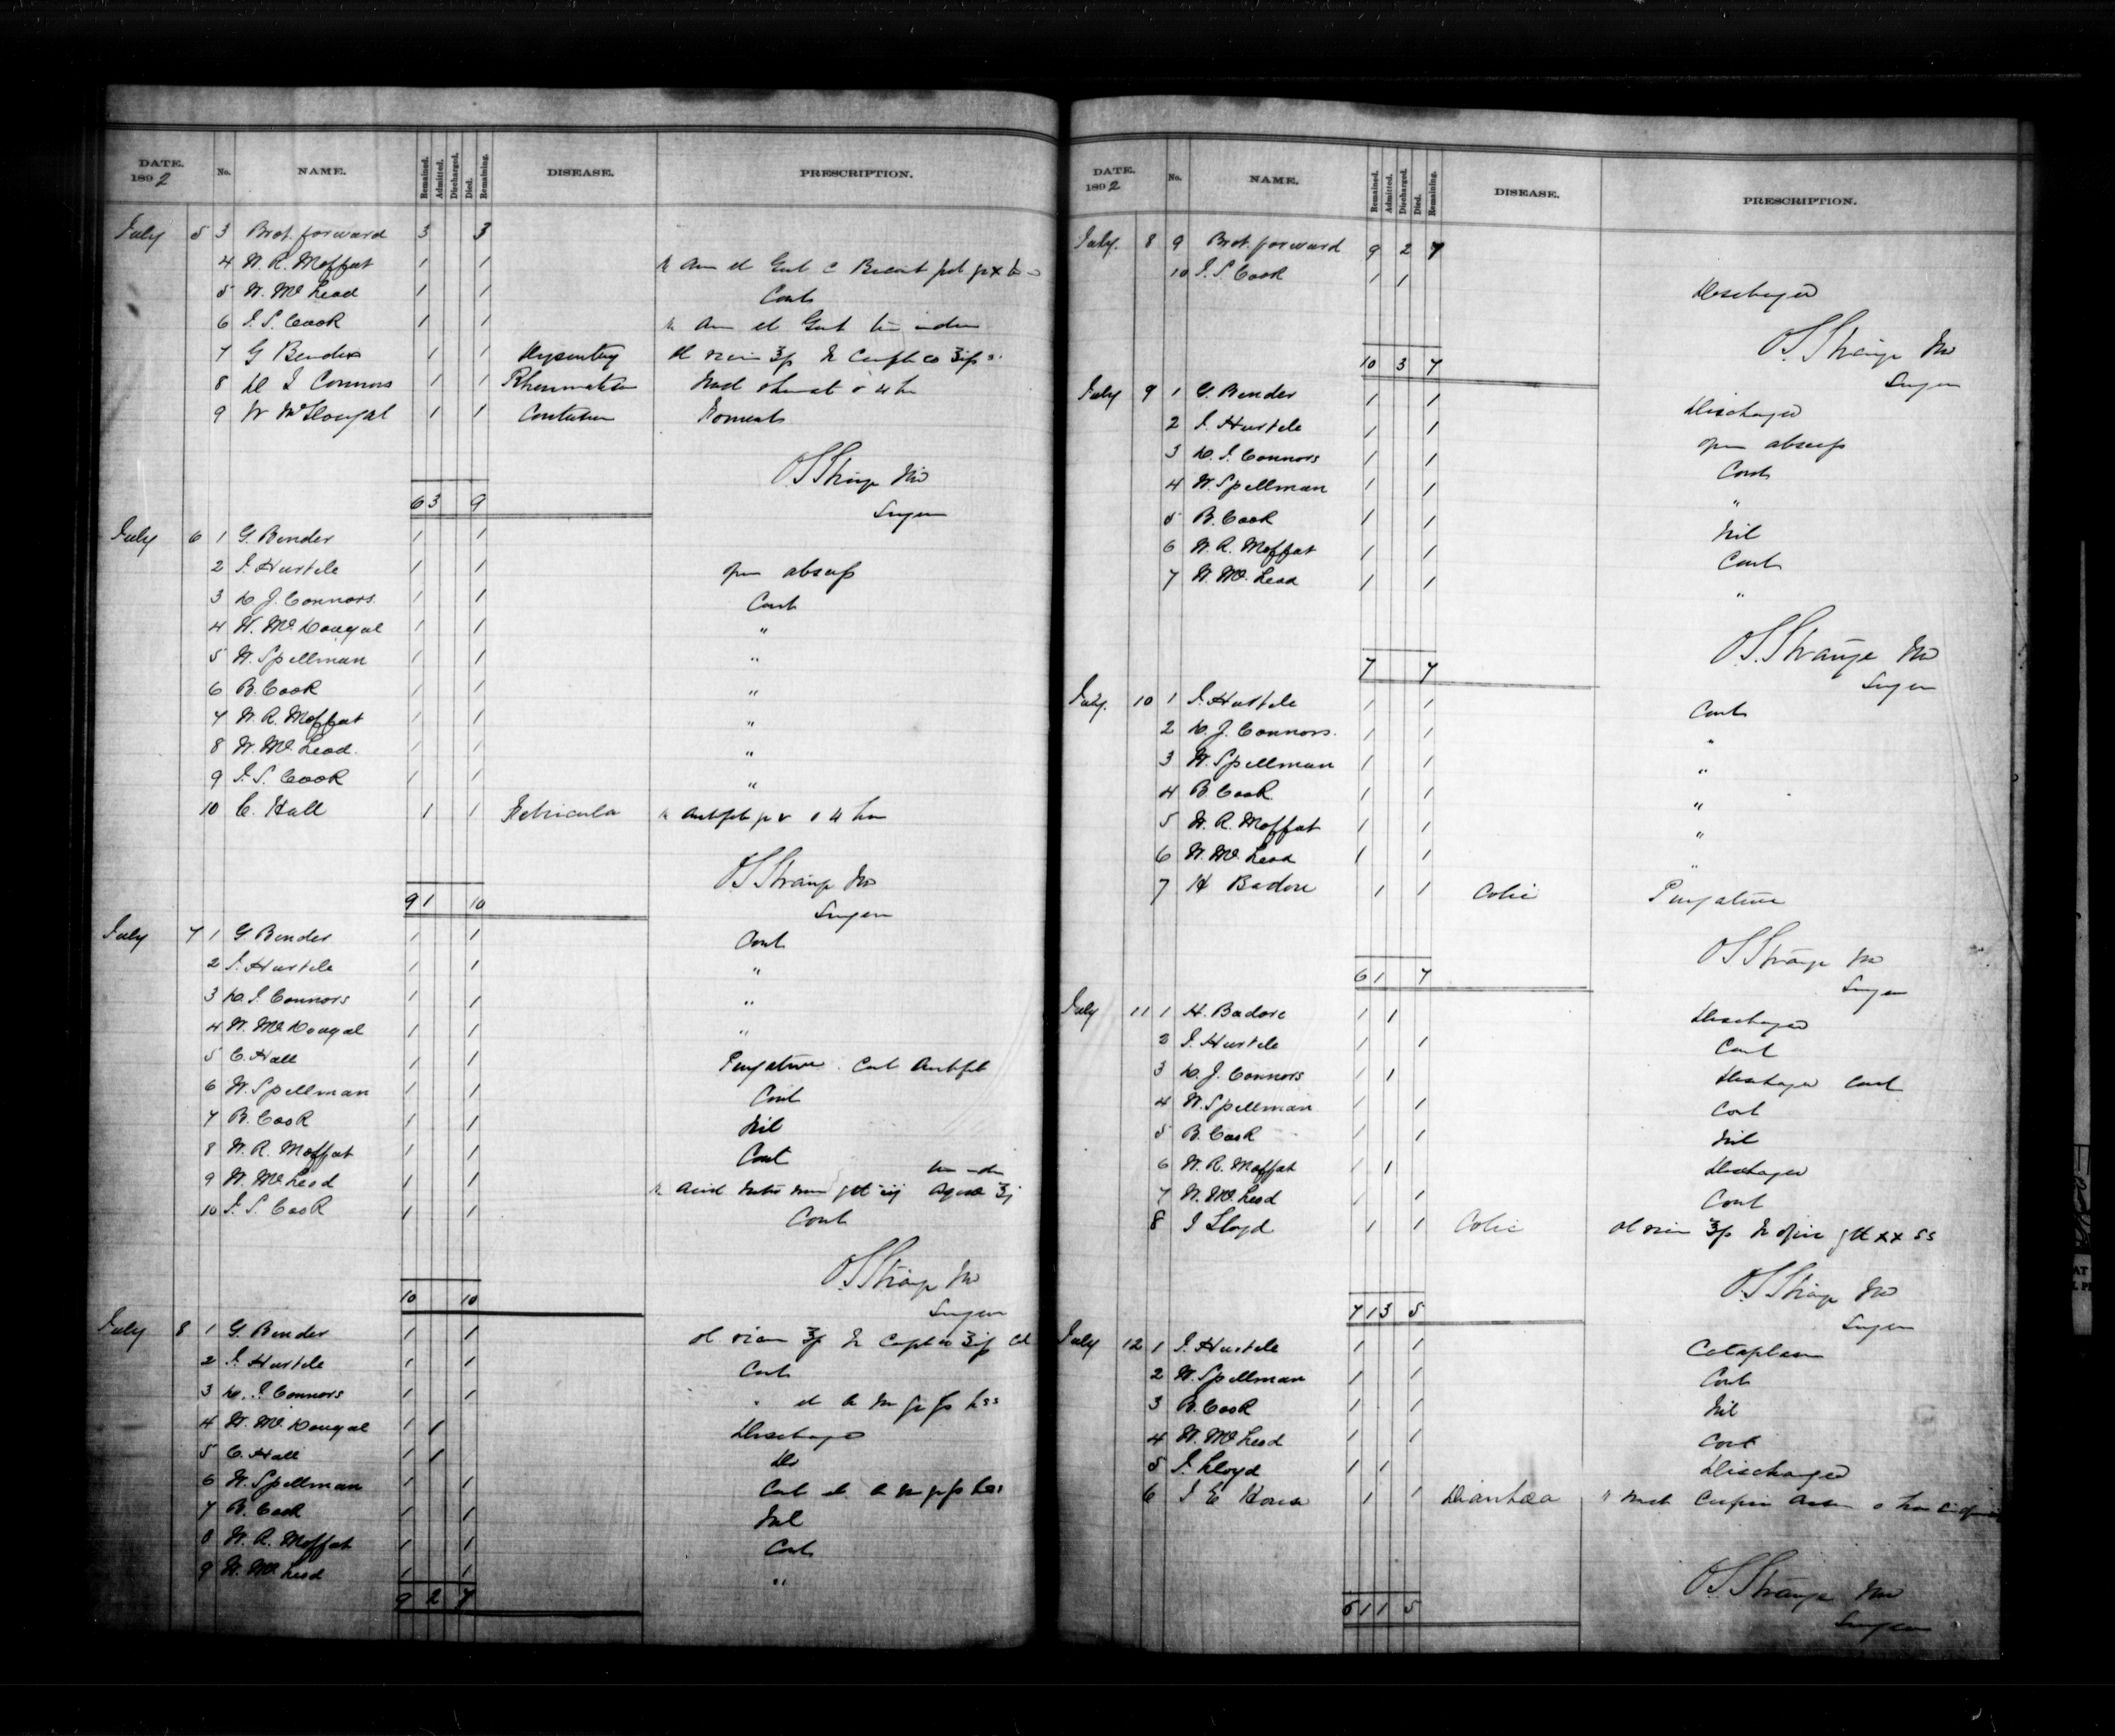 DATE. 1892 No. NAME. Remained. Admitted. Discharged. Died. Remaining. DISEASE. PRESCRIPTION.
July 5 3 Brot. forward 3 3
4 W. R. Moffat 1 1
5 W. Mc Leod 1 1 Cont
6 J. S. Cook 1 1
7 G Bender 1 1 Dysentery
8 D J Connors 1 1 Rheumatism
9 W McDougal 1 1 Contusion Foment
O S Strange MD
6 3 9 Surgeon
July 6 1 G. Bender 1 1
2 J. Hurtele 1 1 open abscess
3 D J. Connors. 1 1 Cont
4 W. Mc Dougal 1 1 "
5 W. Spellman 1 1 "
6 B. Cook 1 1 "
7 W. R. Moffat 1 1 "
8 W. Mc Leod. 1 1 "
9 J. S. Cook 1 1 "
10 C. Hall 1 1 Febricula
O S Strange MD
9 1 10 Surgeon
July 7 1 G Bender 1 1 Cont
2 J. Hurtele 1 1 "
3 D. J. Connors 1 1 "
4 W. Mc Dougal 1 1 "
5 C. Hall 1 1 Purgative. Cont
6 W. Spellman 1 1 Cont
7 B. Cook 1 1 Nil
8 W. R. Moffat 1 1 Cont
9 W. Mc Leod 1 1
10 J. S. Cook 1 1 Cont
O S Strange MD
10 10 Surgeon
July 8 1 G. Bender 1 1
2 J. Hurtele 1 1 Cont
3 D. J. Connors 1 1
4 W. Mc Dougal 1 1 Discharged
5 C. Hall 1 1 Do
6 W. Spellman 1 1 Cont
7 B. Cook 1 1 Nil
8 W. R. Moffat 1 1 Cont
9 W. Mc Leod 1 1 "
9 2 7
DATE. 1892 No. NAME. Remained. Admitted. Discharged. Died. Remaining. DISEASE. PRESCRIPTION.
July. 8 9 Brot. forward 9 2 7
10 J. S. Cook 1 1 Discharged
O S Strange MD
10 3 7 Surgeon
July 9 1 G. Bender 1 1 Discharged
2 J. Hurtele 1 1 open abscess
3 D. J. Connors 1 1 Cont
4 W. Spellman 1 1 "
5 B. Cook 1 1 Nil
6 W. R. Moffat 1 1 Cont
7 W. Mc. Leod 1 1 "
O S. Strange MD
7 7 Surgeon
July. 10 1 J. Hurtele 1 1 Cont
2 D. J. Connors. 1 1 "
3 W. Spellman 1 1 "
4 B. Cook 1 1 "
5 W. R. Moffat 1 1 "
6 W. Mc. Leod 1 1 "
7 H Badore 1 1 Colic Purgative
O S Strange MD
6 1 7 Surgeon
July 11 1 H. Badore 1 1 Discharged
2 J. Hurtele 1 1 Cont
3 D. J. Connors 1 1 Discharged Cont
4 W. Spellman 1 1 Cont
5 B. Cook 1 1 Nil
6 W. R. Moffat 1 1 Discharged
7 W. Mc Leod 1 1 Cont
8 J Lloyd 1 1 Colic
O S Strange MD
7 1 3 5 Surgeon
July 12 1 J. Hurtele 1 1 Cataplasm
2 W. Spellman 1 1 Cont
3 B. Cook 1 1 Nil
4 W. Mc Leod 1 1 Cont
5 J. Lloyd 1 1 Discharged
6 J E 1 1 Diarrhœa
O S Strange MD
6 1 1 5 Surgeon